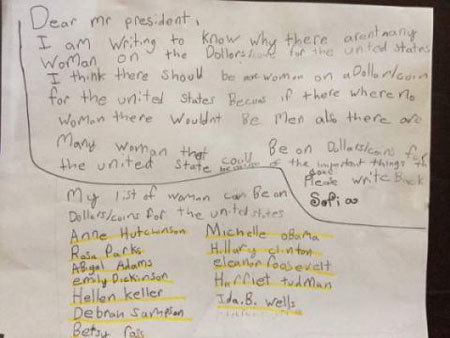 Dear mr president,
I am writing to know why there arent many
woman on the Dollars/coins for the united states
I think there should be more woman on a Dollar/coin
for the united states Becuns if there where no
woman there wouldnt Be men also there are
Many woman that could Be on Dollars/coins for
the united state because of the important things the
Please write Back
Sofia
My list of woman can Be on
Dollars/coins for the united states
Anne Hutchinson
Rosa Parks
Abigal Adams
emily Dickinson
Hellen keller
Debran sampson
Betsy ross
Michelle obama
Hillary clinton
eleanor roosevelt
Harriet tudman
Ida.B. wells